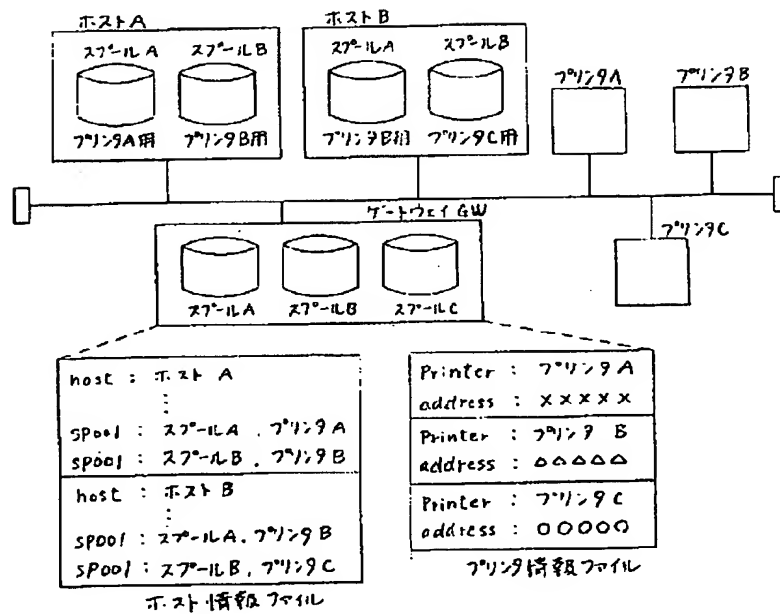 ホストA
ホストB
スプールA
スプールB
スプールA
スプールB
プリンタA用
プリンタB用
プリンタB用
プリンタC用
プリンタA
プリンタB
ゲートウェイGW
プリンタC
スプールA
スプールB
スプールC
host : ホストA
⋮
spool : スプールA , プリンタA
spool : スプールB , プリンタB
host : ホストB
⋮
spool : スプールA , プリンタB
spool : スプールB , プリンタC
ホスト情報ファイル
Printer : プリンタA
address : ×××××
Printer : プリンタ B
address : △△△△△
Printer : プリンタC
address : ○○○○○
プリンタ情報ファイル